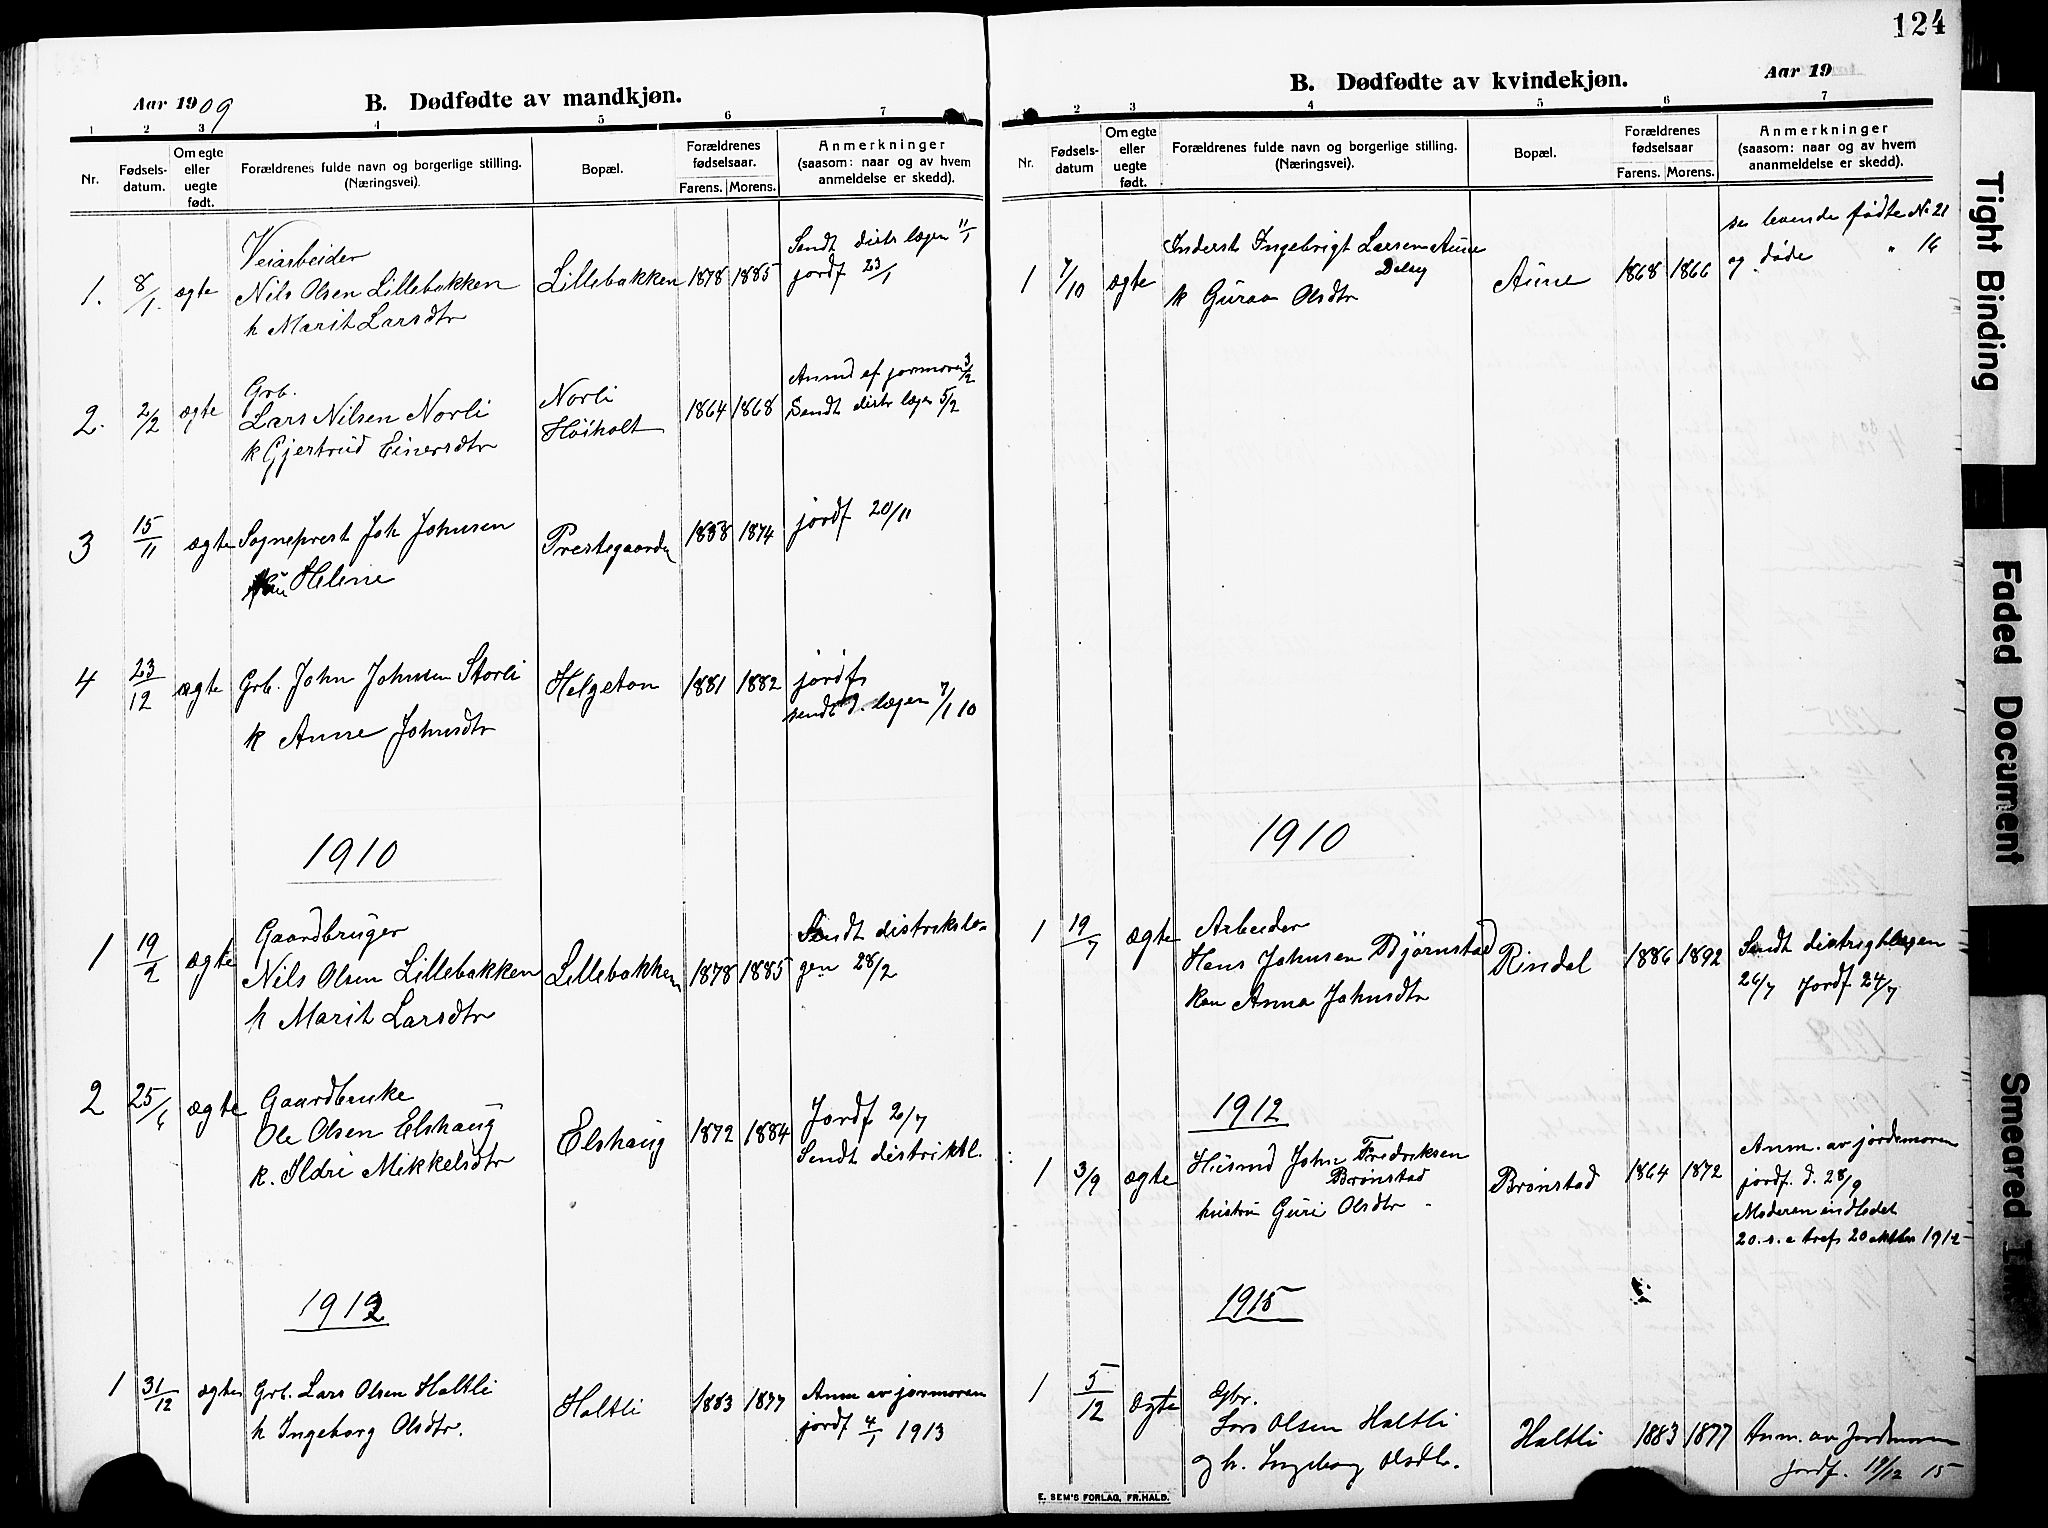 Aar 1909
B. Dødfødte av mandkjøn.
1 2 3 4 5 6 7
Nr.
Fødsels-
datum.
Om egte
eller
uegte
født.
Forældrenes fulde navn og borgerlige stilling.
(Næringsvei).
Bopæl.
Forældrenes
fødselsaar.
Farens. Morens.
Anmerkninger
(saasom: naar og av hvem
anmeldelse er skedd).
Veiarbeider
1. 8/1. ægte Nils Olsen Lillebakken Lillebakken 1878 1885 Sendt distr lægen 11/1
h Marit Larsdtr jordf 23/1
Grb.
2. 2/2 ægte Lars Nilsen Norli Norli 1864 1868 Anmd af jormoren 3/2
k Gjertrud Einersdtr Höiholt Sendt distr lægen 5/2
3 15/11 ægte Sogneprest Joh Johnsen Prestegaarden 1874 jordf 20/11
Helene
4 23/12 ægte Grb. John Johnsen Storli Helgeton 1881 1882 jordf
k Anne Johnsdtr sendt d. lægen 7/1 10
1910
Gaardbruger
1 19/2 ægte Nils Olsen Lillebakken Lillebakken 1878 1885 Sendt distriktslæ-
h Marit Larsdtr gen 28/2
Gaardbruke
2 25/6 ægte Ole Olsen Elshaug Elshaug 1872 1884 Jordf 2/7
k. Ildri Mikkelsdtr Sendt distriktl.
1912
1 31/12 ægte Grb. Lars Olsen Haltli Haltli 1883 1877 Anm av jormoren
h Ingeborg Olsdtr. jordf 4/1 1913
124
Aar 19
B. Dødfødte av kvindekjøn.
1 2 3 4 5 6 7
Nr.
Fødsels-
datum
Om egte
eller
uegte
født.
Forældrenes fulde navn og borgerlige stilling.
(Næringsvei).
Bopæl.
Forældrenes
fødselsaar
Farens. Morens.
Anmerkninger
(saasom: naar og av hvem
ananmeldelse er skedd).
1 7/10 ægte Inderst Ingebrigt Larsen Aune Aune 1868 1866 se levende fødte No 21
k Guraa Olsdtr og døde " 16
1910
Arbeider
1 19/7 ægte Hans Johnsen Bjørnstad Rindal 1886 1892 Sendt distrigtlægen
kon Anna Johnsdtr 26/7 Jordf 24/7
1912
1 3/9 ægte Husmd John Fredriksen Brønstad 1864 1872 Anm. av jordemoren
Brønstad jordf. d. 28/9
hustru Guri Olsdtr - Moderen indledet
20. s. e trefs 20 oktbr 1912
1915
Gbr.
1 5/12 ægte Lars Olsen Haltli Haltli 1883 1877 Anm. av Jordmoren
og h. Ingeborg Olsdtr. Jordf. 19/12 15
E. SEM'S FORLAG, FR.HALD.
Tight Binding
Faded Document
Smeared